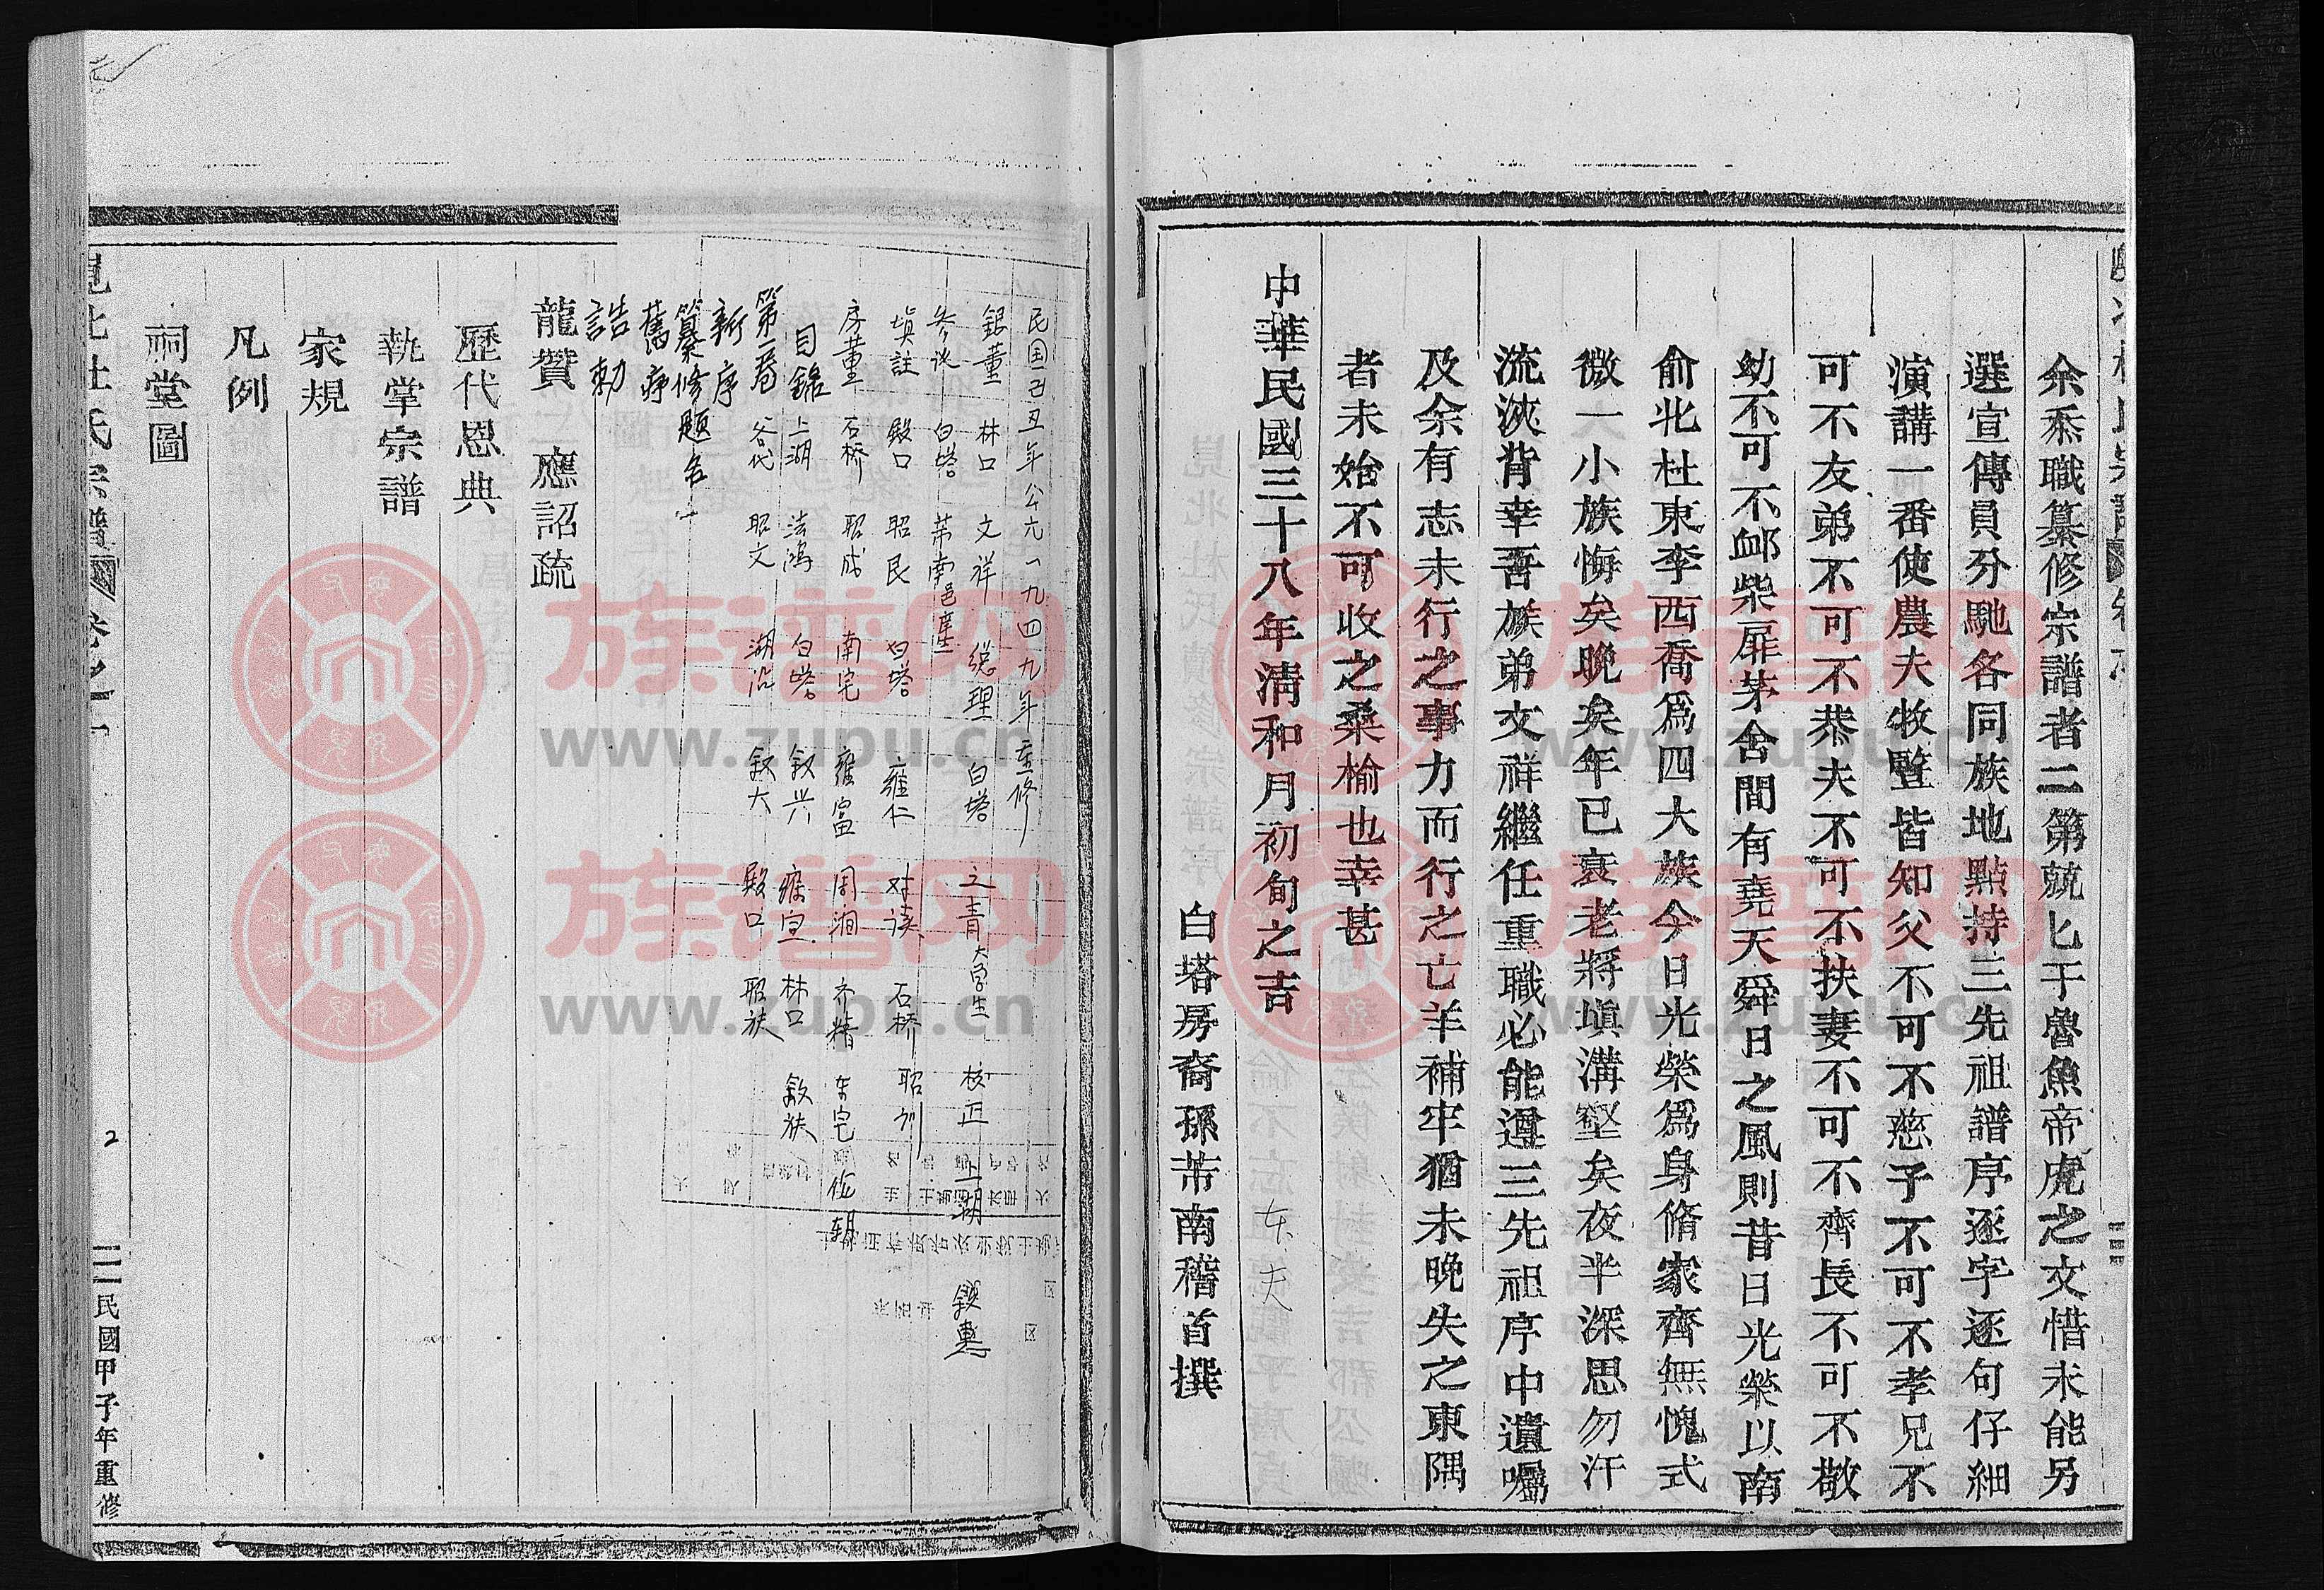 余忝職纂修宗譜者二第兢匕于魯魚帝虎之文惜未能另
選宣傳員分馳各同族地點持三先祖譜序逐字逐句仔細
演講一番使農夫牧豎皆知父不可不慈子不可不孝兄不
可不友弟不可不恭夫不可不扶妻不可不齊長不可不敬
幼不可不卹柴扉茅舍間有堯天舜日之風則昔日光榮以南
俞北杜東李西喬爲四大族今日光榮爲身脩家齊無愧式
微一小族悔矣晚矣年已衰老將塡溝壑矣夜半深思勿汗
流浹背幸吾族弟文祥繼任重職必能遵三先祖序中遺囑
及余有志未行之事力而行之亡羊補牢猶未晚失之東隅
者未始不可收之桑榆也幸甚
中華民國三十八年清和月初旬之吉
白塔房裔孫芾南稽首撰
民国己丑年公元一九四九年 重修
銀董 林口 文祥 總理 白塔 之青大学生 校正 上湖 敘惠
参议 白塔 芾南邑庠生
塡註 殿口 昭民 白塔 雍仁 对读 石桥 昭
房董 石桥 昭成 南宅 雍富 周澗 齐精 东宅 作朝
目錄 上湖 法鴻 白塔 叙兴 雍宣 林口 敘族
第一卷 各代 昭文 湖沿 叙大 殿口 昭族
新序
纂修題名
舊序
誥勅
龍贊 應詔疏
歷代恩典
執掌宗譜
家規
凡例
祠堂圖
北杜氏宗譜 卷之一
2
民國甲子年重修
族谱网
www.zupu.cn
族谱网
www.zupu.cn
族谱网
www.zupu.cn
族谱网
www.zupu.cn